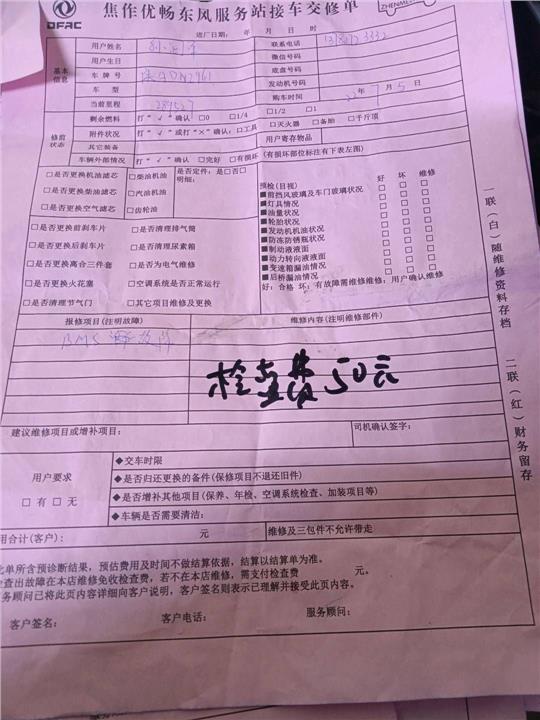 DFAC
焦作优畅东风服务站接车交修单
ZHENMEI
进厂日期： 年 月 日 时
基本信息
用户姓名 联系电话
用户生日 微信号码
车牌号 底盘号码
车型 发动机号码
当前里程 289527 购车时间 22年7月5日
修前状态
剩余燃料 打“√”确认 □0 □1/4 □1/2 □1
附件状况 打“√”或打“×”确认：□工具 □灭火器 □备胎 □千斤顶
其它装备 用户寄存物品
车辆外部情况 打“√”确认 □完好 □有损坏(有损部位标注有下表左图)
□是否更换机油滤芯 □柴油机油 是否定件：是□否□
明细：
□是否更换柴油滤芯 □汽油机油
□是否更换空气滤芯 □齿轮油
□是否更换前刹车片 □是否清理排气筒
□是否更换后刹车片 □是否清理尿素箱
□是否更换离合三件套 □是否为电气维修
□是否更换火花塞 □空调系统是否正常运行
□是否清理节气门 □其它项目维修及更换
预检(目视) 好 坏 维修
■前挡风玻璃及车门玻璃状况 □ □ □
■灯具情况 □ □ □
■油量状况 □ □ □
■轮胎状况 □ □ □
■发动机机油状况 □ □ □
■防冻防锈瓶状况 □ □ □
■制动液液面 □ □ □
■动力转向液液面 □ □ □
■变速箱漏油情况 □ □ □
■后桥漏油情况 □ □ □
好：合格 坏：有故障需维修维修：用户确认维修
报修项目(注明故障) 维修内容(注明维修部件)
BMS
检查费50元
建议维修项目或增补项目： 司机确认签字：
用户要求
□有 □无
◆交车时限
◆是否归还更换的备件(保修项目不退还旧件)
◆是否增补其他项目(保养、年检、空调系统检查、加装项目等)
◆车辆是否需要清洁：
用合计(客户)： 元 维修及三包件不允许带走
此单所含预诊断结果，预估费用及时间不做结算依据，结算以结算单为准。
检查出故障在本店维修免收检查费，若不在本店维修，需支付检查费 元。
务顾问已将此页内容详细向客户说明，客户签名则表示已理解并接受此页内容。
客户签名： 客户电话： 服务顾问：
一联(白)随维修资料存档
二联(红)财务留存